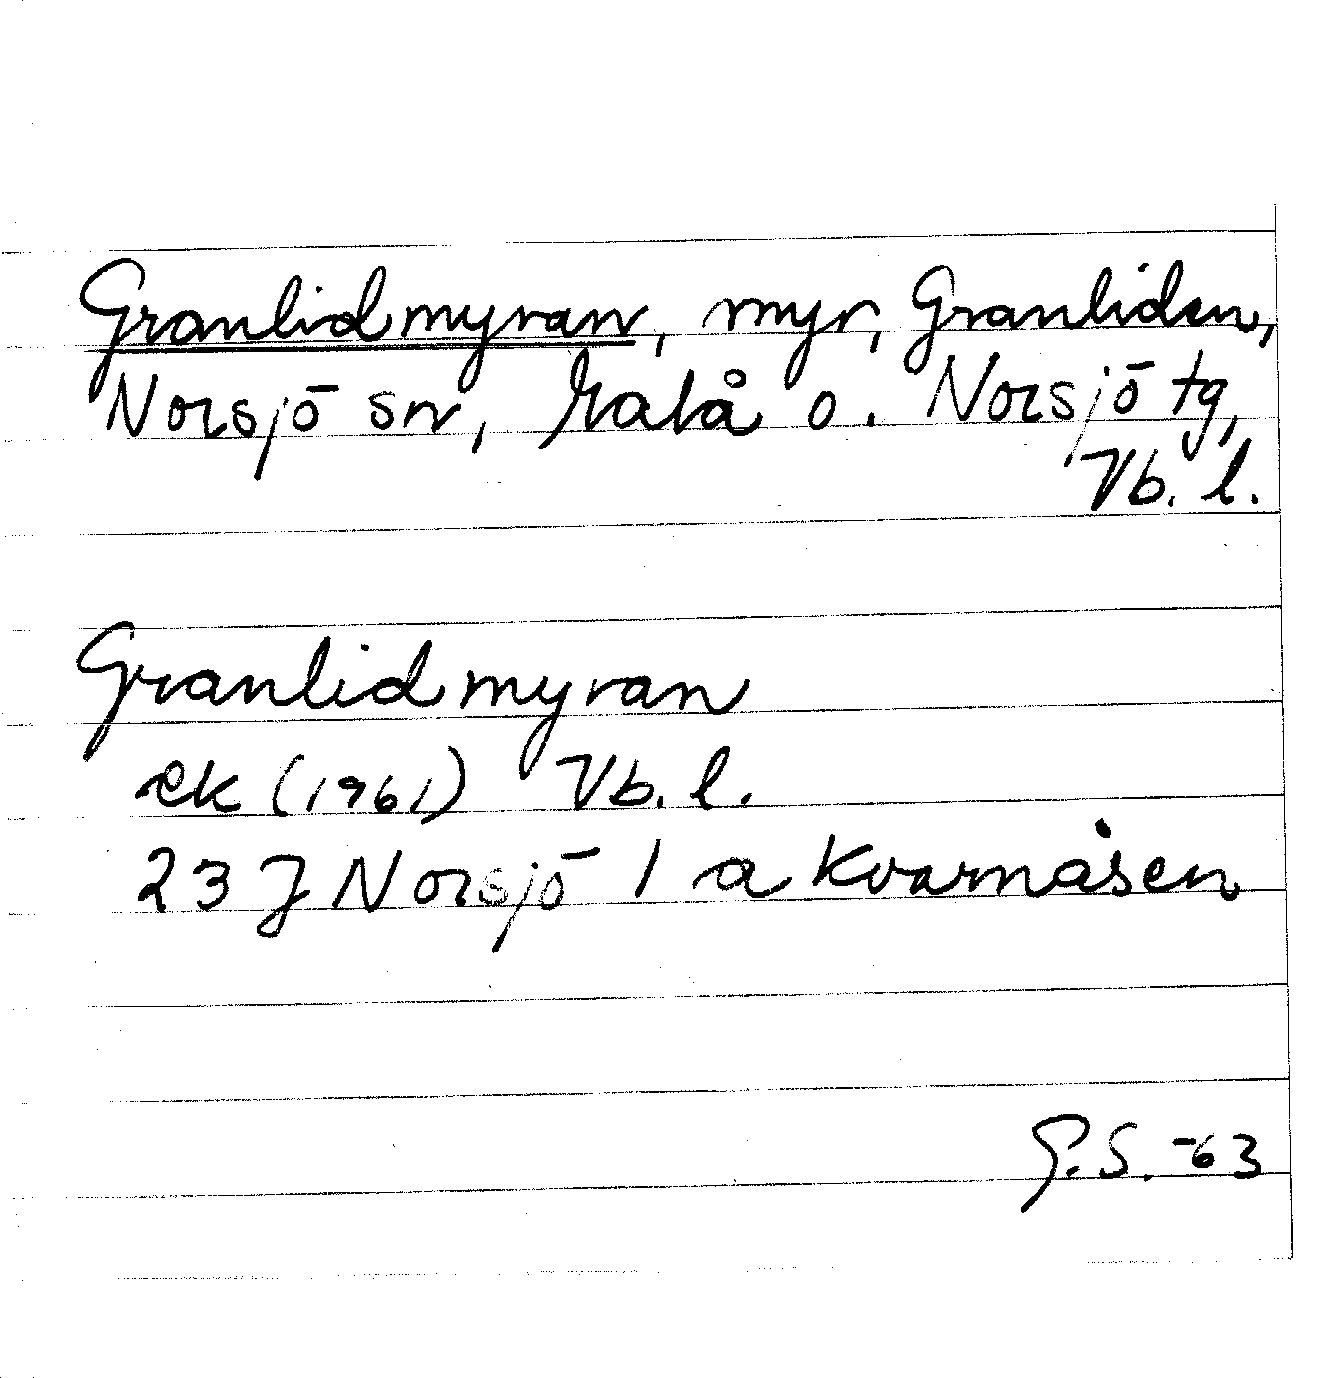 Granlidmyran, myr, Granliden,
Norsjö sn, Malå o. Norsjö tg,
Vb. l.
Granlidmyran
ek (1961) Vb. l.
23 J Norsjö 1 a Kvarnåsen
G.S. -63